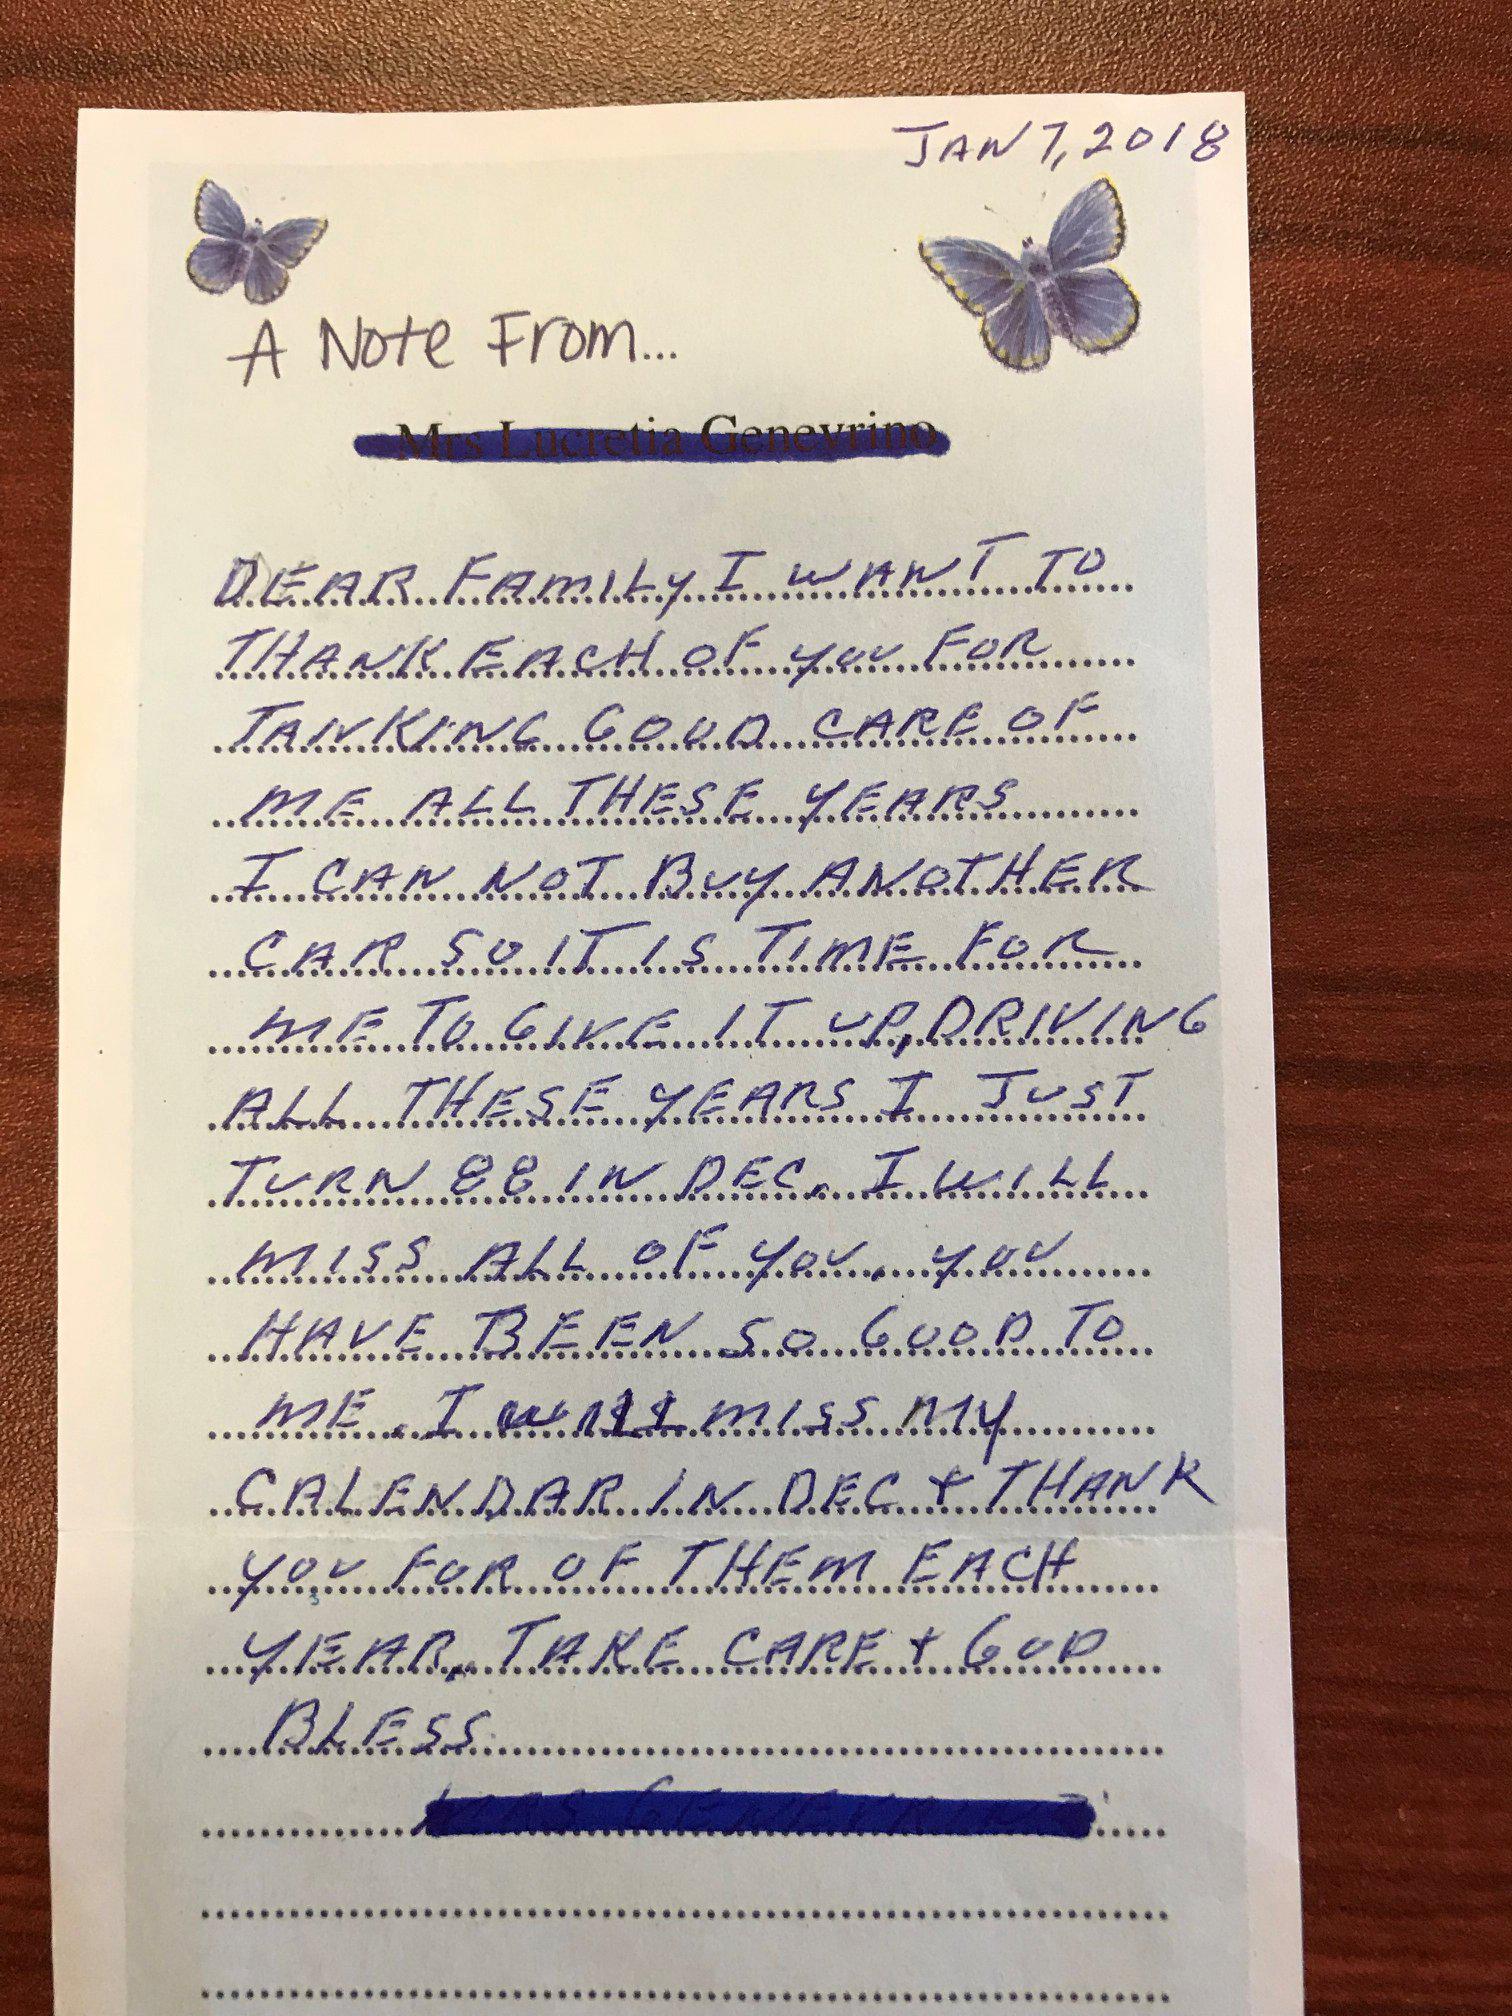 JAN 7, 2018
A Note From...
DEAR FAMILY I WANT TO
THANK EACH OF YOU FOR
TANKING GOOD CARE OF
ME ALL THESE YEARS
I CAN NOT BUY ANOTHER
CAR SO IT IS TIME FOR
ME TO GIVE IT UP, DRIVING
ALL THESE YEARS I JUST
TURN 88 IN DEC. I WILL
MISS ALL OF YOU. YOU
HAVE BEEN SO GOOD TO
ME. I WILL MISS MY
CALENDAR IN DEC + THANK
YOU FOR OF THEM EACH
YEAR. TAKE CARE + GOD
BLESS